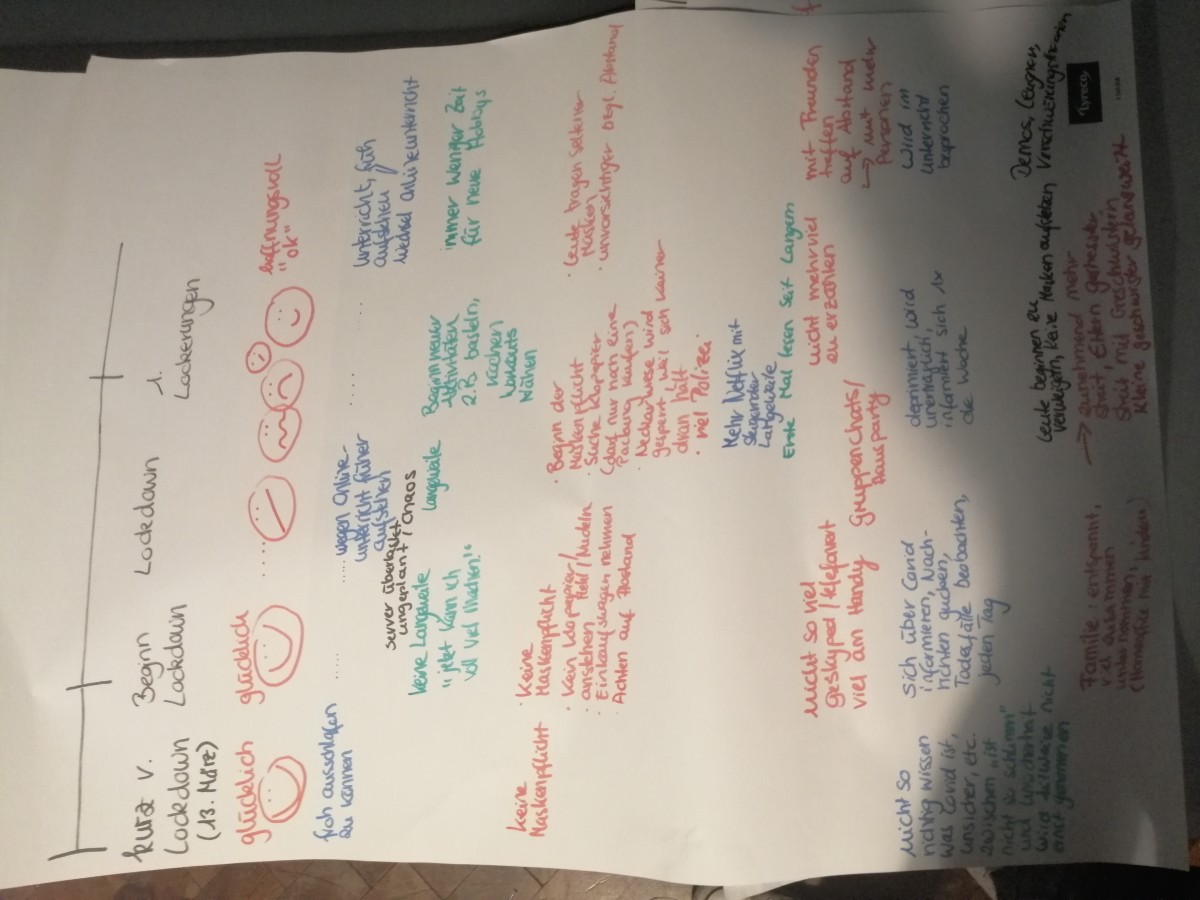 kurz v.
Lockdown
(13. März)
Beginn
Lockdown
Lockdown
1.
Lockerungen
glücklich
glücklich
hoffnungsvoll
"ok"
froh ausschlafen
zu können
wegen Online-
unterricht früher
aufstehen
Server überlastet
ungeplant / Chaos
Unterricht, früh
aufstehen
Wechsel onlineunterricht
keine Langeweile
"jetzt kann ich
voll viel machen!"
Langeweile
Beginn neuer
Aktivitäten
z.B. basteln,
kochen
Workouts
Nähen
immer weniger Zeit
für neue Hobbys
Keine
Maskenpflicht
· Keine
Maskenpflicht
· Kein Klopapier
anstehen Mehl/Nudeln
· Einkaufswagen nehmen
· Achten auf Abstand
· Beginn der
Maskenpflicht
· Suche Klopapier
(darf nur noch eine
Packung kaufen)
· Neckarwiese wird
gesperrt weil sich keiner
dran hält
· viel Polizei
· Leute tragen seltener
Masken
· unvorsichtiger bzgl. Abstand
Mehr Netflix mit
steigender
Langeweile
Erste Mal lesen seit Langem
nicht so viel
geskyped / telefoniert
viel am Handy
Gruppenchats/
Hausparty
nicht mehr viel
zu erzählen
mit Freunden
treffen
auf Abstand
→ mit mehr
Personen
nicht so
richtig wissen
was Covid ist,
unsicher, etc.
zwischen ist
nicht so schlimm"
und Unsicherheit
wird teilweise nicht
ernst genommen
sich über Covid
informieren, Nach-
richten gucken,
Todesfälle beobachten,
jeden Tag
deprimiert wird
unerträglich,
informiert sich 1x
die Woche
wird im
Unterricht
besprochen
Leute beginnen zu
verweigern, keine Masken aufziehen
Demos, Leugnen,
Verschwörungstheorien
Familie: entspannt,
viel zusammen
unternommen,
→ zunehmend mehr
Streit, Eltern gestresster
Streit mit Geschwistern
kleine Geschwister gelangweilt
Lyreco